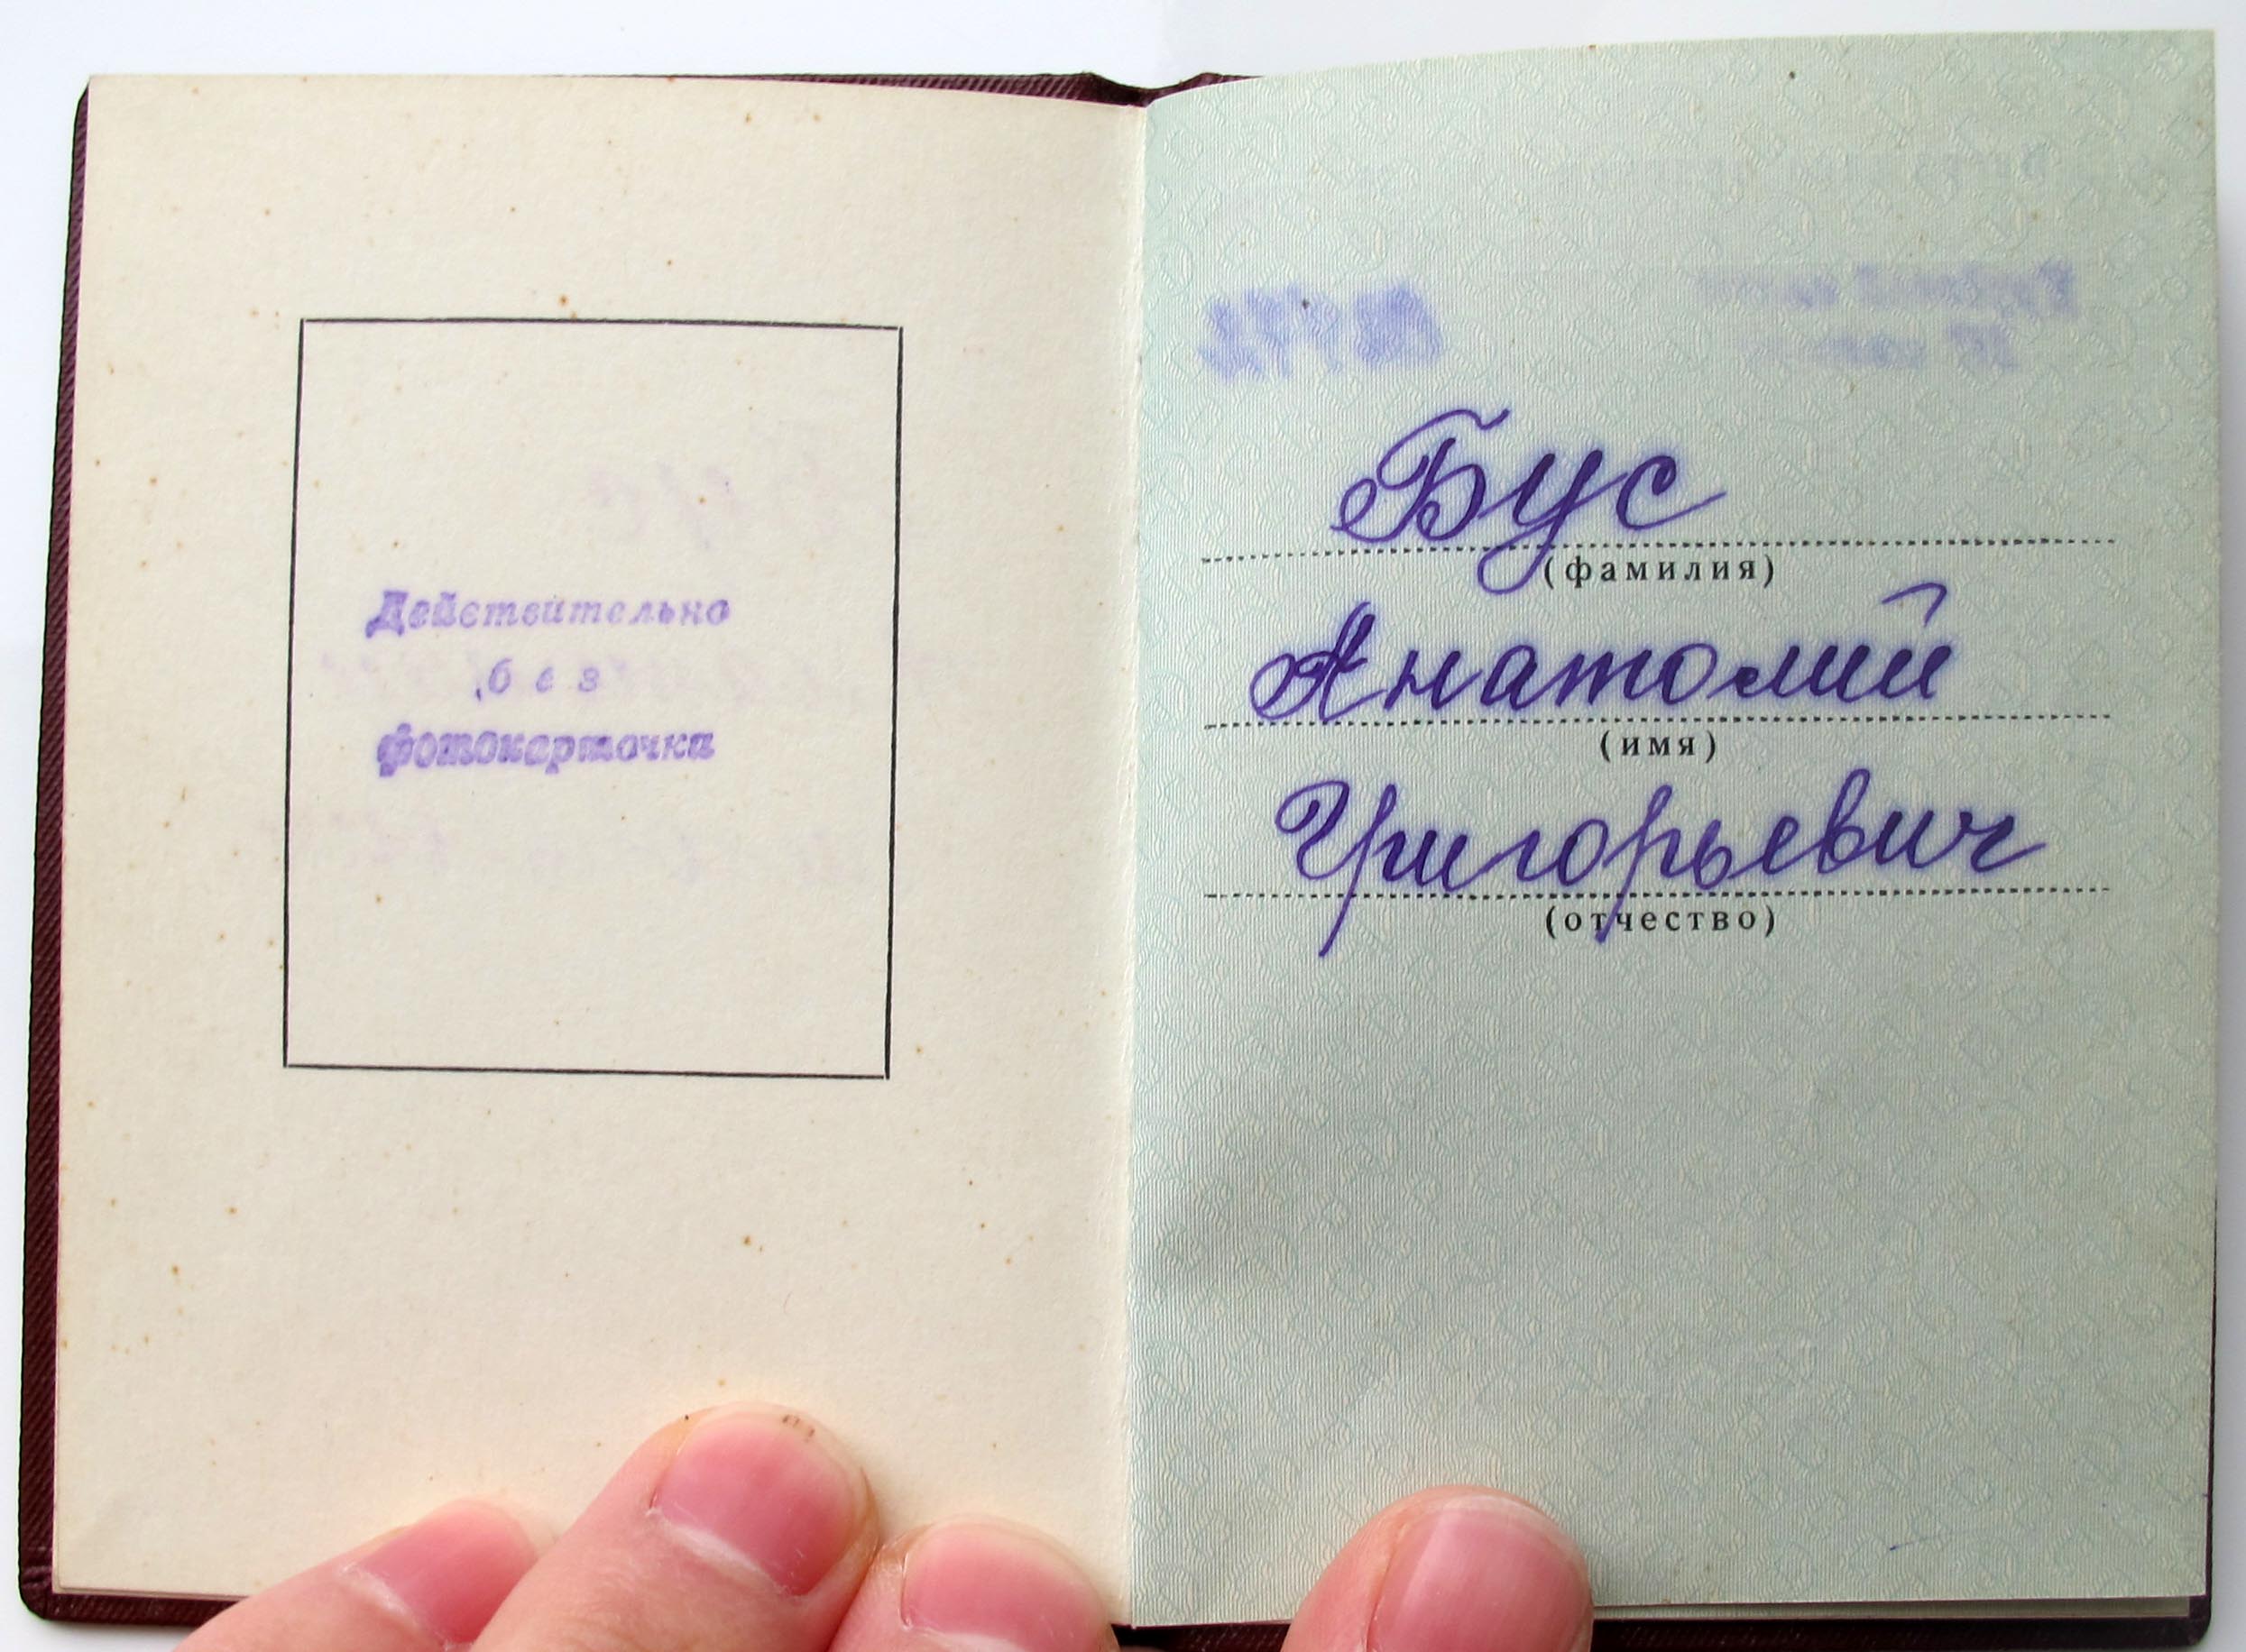 Действительно
без
фотокарточка
Бус
(фамилия)
Анатолий
(имя)
Григорьевич
(отчество)